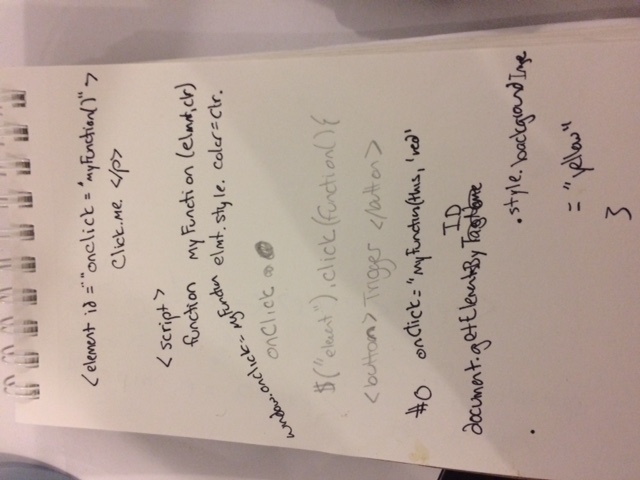 <element id="" onclick="myFunction()">
Click me </p>
<script>
function myFunction (elmnt,clr)
window.onclick=myFunction elmt.style.color=clr.
onClick =
$("element").click(function(){
<button> Trigger </button>
#0 onclick="myFunction(this,'red'
ID
document.getElementBy TagName
.style.background
= "yellow"
3